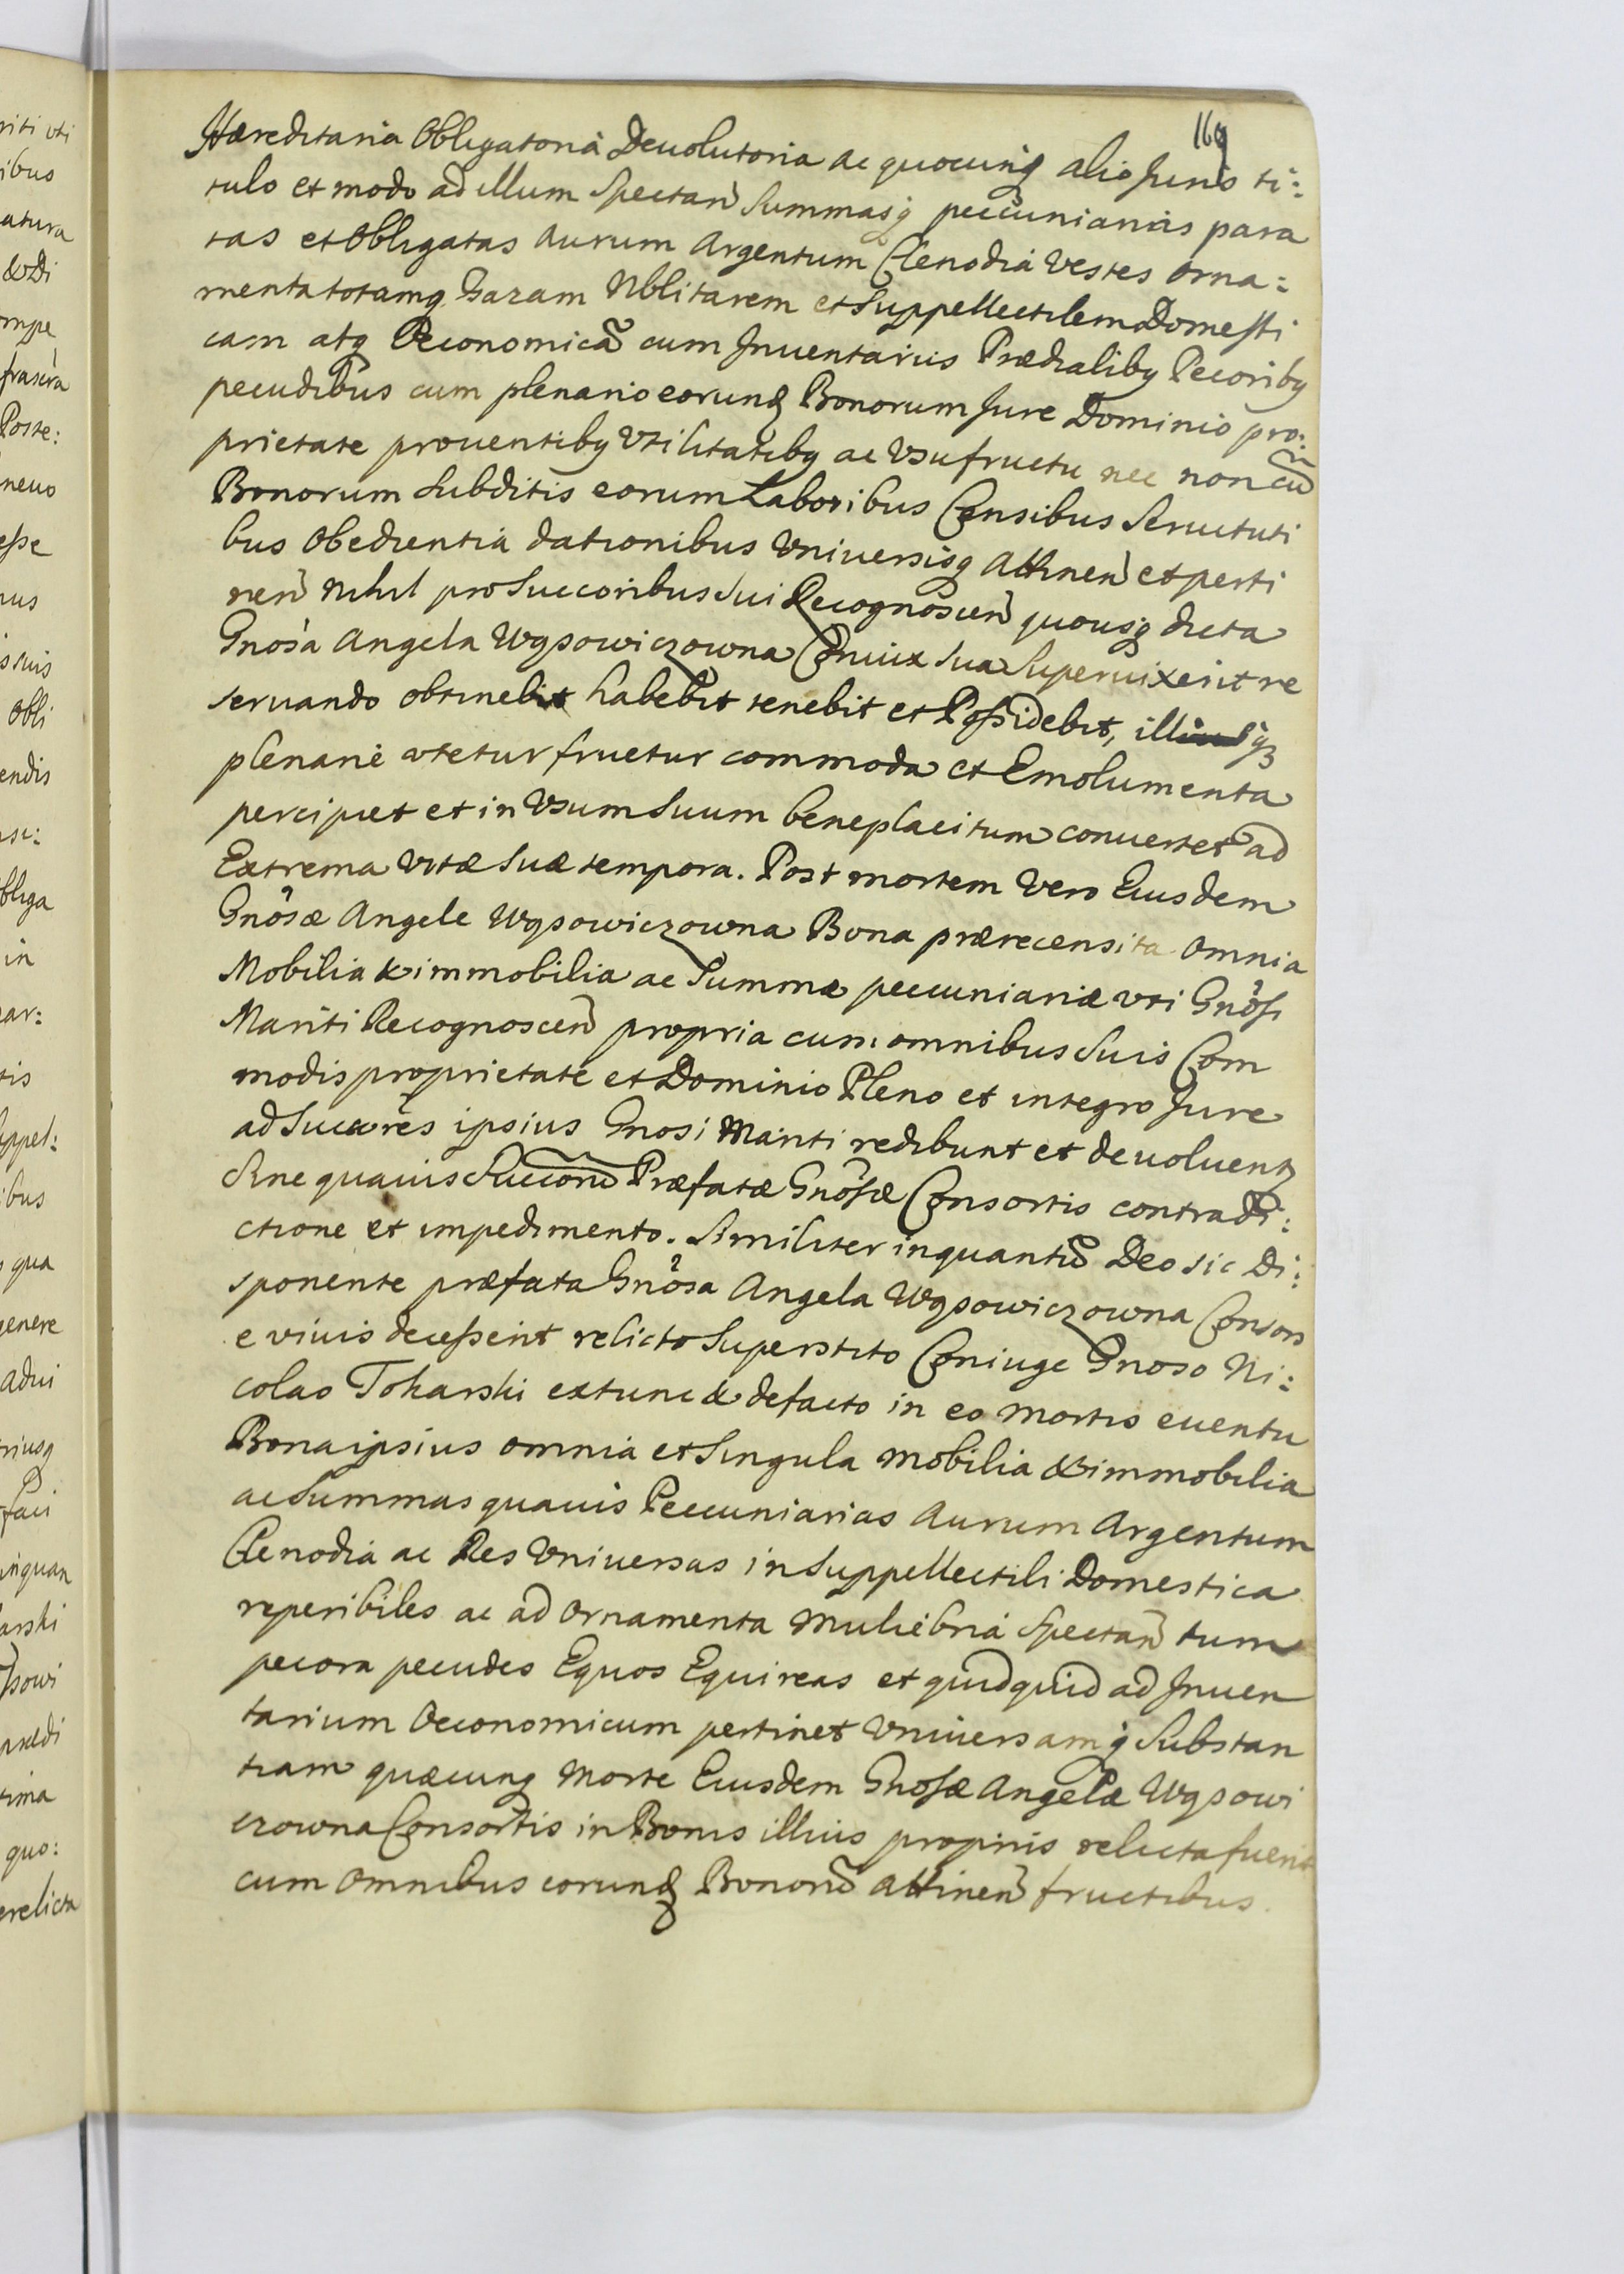 169
Hæreditaria Obligatoria Deuolutoria ac quocunq alio Juris ti:
tulo et modo ad illum Spectan Summasq pecunianas para
tas et Obligatas Aurum Argentum Clenodia Vestes Orna:
menta totamq Gazam Nblitarem et Suppellectilem Domesti
cam atq Oeconomicã cum Inuentariis Prædialibq Pecoribq
pecudibus cum plenario eorunq Bonorum Jure Dominio pro:
prietate prouentibq Vtilitatibq ac Vsufructu nec non cũ
Bonorum Subditis eorum Laboribus Censibus Seruituti
bus Obedientia dationibus Vniuersisq Attinen et perti
nen Nihil pro Succoribus Sui Recognoscen quousq dicta
Gnosa Angela Wąsowiczowna Coniux Sua Superuixerit re
seruando obtinebit habebit tenebit et Possidebit, illisqz
plenariè vtetur fruetur commoda et Emolumenta
percipiet et in Vsum Suum beneplacitum conuertet ad
Extrema Vitæ Suæ tempora. Post mortem Vero Eiusdem
Gnosæ Angele Wąsowiczowna Bona prærecensita Omnia
Mobilia & immobilia ac Summæ pecuniariæ vti Gnosi
Mariti Recognoscen propria cum omnibus Suis Com
modis proprietate et Dominio Pleno et integro Jure
ad Succores ipsius Gnosi Mariti redibunt et deuoluentr
Sine quauis Succorũ Præfatæ Gnosæ Consortis contradi:
ctione et impedimento. Similiter inquantũ Deo sic Di:
sponente præfata Gnosa Angela Wąsowiczowna Consors
e viuis decesserit relicto Superstito Coniuge Gnoso Ni:
colao Tokarski extunc & defacto in eo mortis euentu
Bona ipsius omnia et Singula mobilia & immobilia
ac Summas quauis Pecuniarias Aurum Argentum
Clenodia ac Res Vniuersas in Suppellectili Domestica
reperibiles ac ad Ornamenta Muliebria Spectan tum
pecora pecudes Equos Equireas et quidquid ad Inuen
tarium Oeconomicum pertinet Vniuersamq Substan
tiam quæcunq Morte Eiusdem Gnosæ Angelæ Wąsowi
czowna Consortis in Bonis illius propriis relicta fuerit
cum Omnibus eorunq Bonorũ Attinen fructibus.